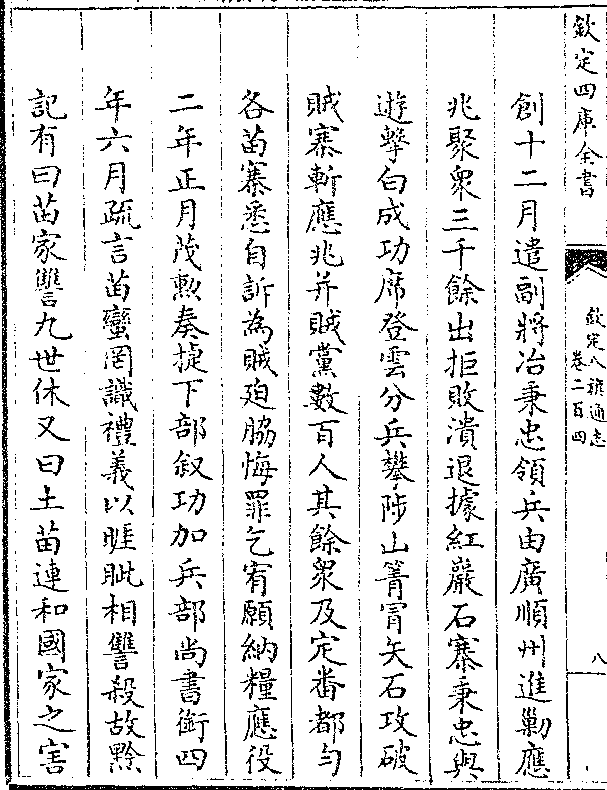 欽定四庫全書
欽定八旗通志
卷二百四
八
創十二月遣副將冶秉忠領兵由廣順州進勦應
兆聚衆三千餘出拒敗潰退據紅巖石寨秉忠與
遊擊白成功席登雲分兵攀陟山箐冒矢石攻破
賊寨斬應兆并賊黨數百人其餘衆及定番都勻
各苗寨悉自訴為賊迫脇悔罪乞宥願納糧應役
二年正月茂勲奏捷下部叙功加兵部尚書銜四
年六月疏言苗蠻罔識禮義以睚眦相讐殺故黔
記有曰苗家讐九世休又曰土苗連和國家之害